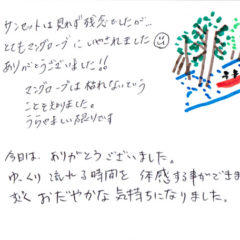 サンセットは見れず残念でしたが…
とてもマングローブにいやされました
ありがとうございました!!
マングローブは枯れないという
ことも知りました。
うらやましい限りです
今日は、ありがとうございました。
ゆっくり流れる時間を体感する事ができま
すごく おだやかな気持ちになりました。